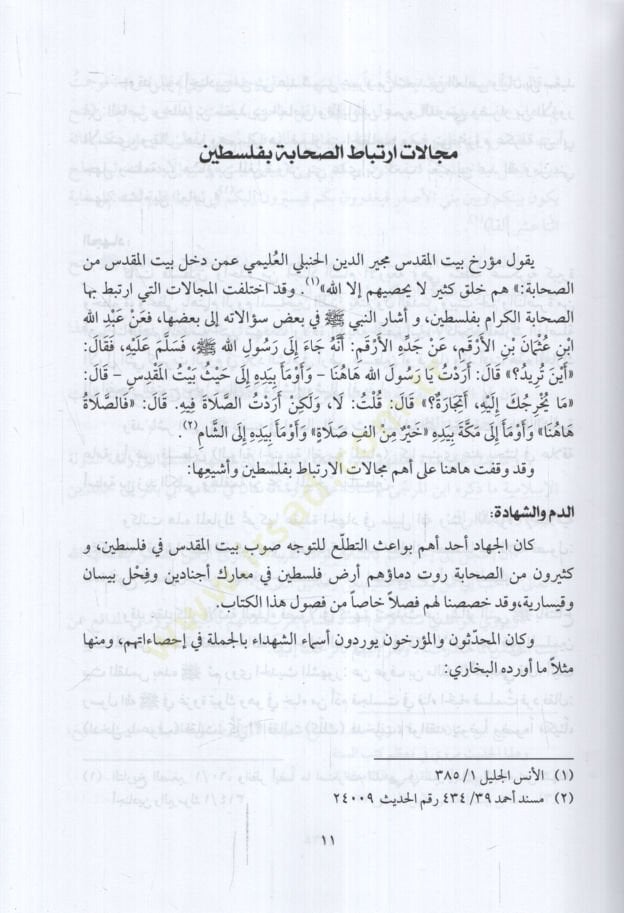 مجالات ارتباط الصحابة بفلسطين
يقول مؤرخ بيت المقدس مجير الدين الحنبلي العُليمي عمن دخل بيت المقدس من
الصحابة:» هم خلق كثير لا يحصيهم إلا الله»(١). وقد اختلفت المجالات التي ارتبط بها
الصحابة الكرام بفلسطين، و أشار النبي ﷺ في بعض سؤالاته إلى بعضها، فعَنْ عَبْدِ الله
ابْنِ عُثْمَانَ بْنِ الأَرْقَمِ، عَنْ جَدِّهِ الأَرْقَمِ: أَنَّهُ جَاءَ إِلَى رَسُولِ الله ﷺ، فَسَلَّمَ عَلَيْهِ، فَقَالَ:
«أَيْنَ تُرِيدُ؟» قَالَ: أَرَدْتُ يَا رَسُولَ الله هَاهُنَا – وَأَوْمَأَ بِيَدِهِ إِلَى حَيْثُ بَيْتُ المَقْدِسِ – قَالَ:
«مَا يُخْرِجُكَ إِلَيْهِ، أَتِجَارَةٌ؟» قَالَ: قُلْتُ: لَا، وَلَكِنْ أَرَدْتُ الصَّلَاةَ فِيهِ. قَالَ: «فَالصَّلَاةُ
هَاهُنَا» وَأَوْمَأَ إِلَى مَكَّةَ بِيَدِهِ «خَيْرٌ مِنْ الفِ صَلَاةٍ» وَأَوْمَأَ بِيَدِهِ إِلَى الشَّامِ(٢).
وقد وقفت هاهنا على أهم مجالات الارتباط بفلسطين وأشيعِها:
الدم والشهادة:
كان الجهاد أحد أهم بواعث التطلّع للتوجه صوب بيت المقدس في فلسطين، و
كثيرون من الصحابة روت دماؤهم أرض فلسطين في معارك أجنادين وفِحْل بيسان
وقيسارية،وقد خصصنا لهم فصلاً خاصاً من فصول هذا الكتاب.
وكان المحدّثون والمؤرخون يوردون أسماء الشهداء بالجملة في إحصاءاتهم، ومنها
مثلاً ما أورده البخاري:
(١) الأنس الجليل ١/ ٣٨٥
(٢) مسند أحمد ٣٩/ ٤٣٤ رقم الحديث ٢٤٠٠٩
١١